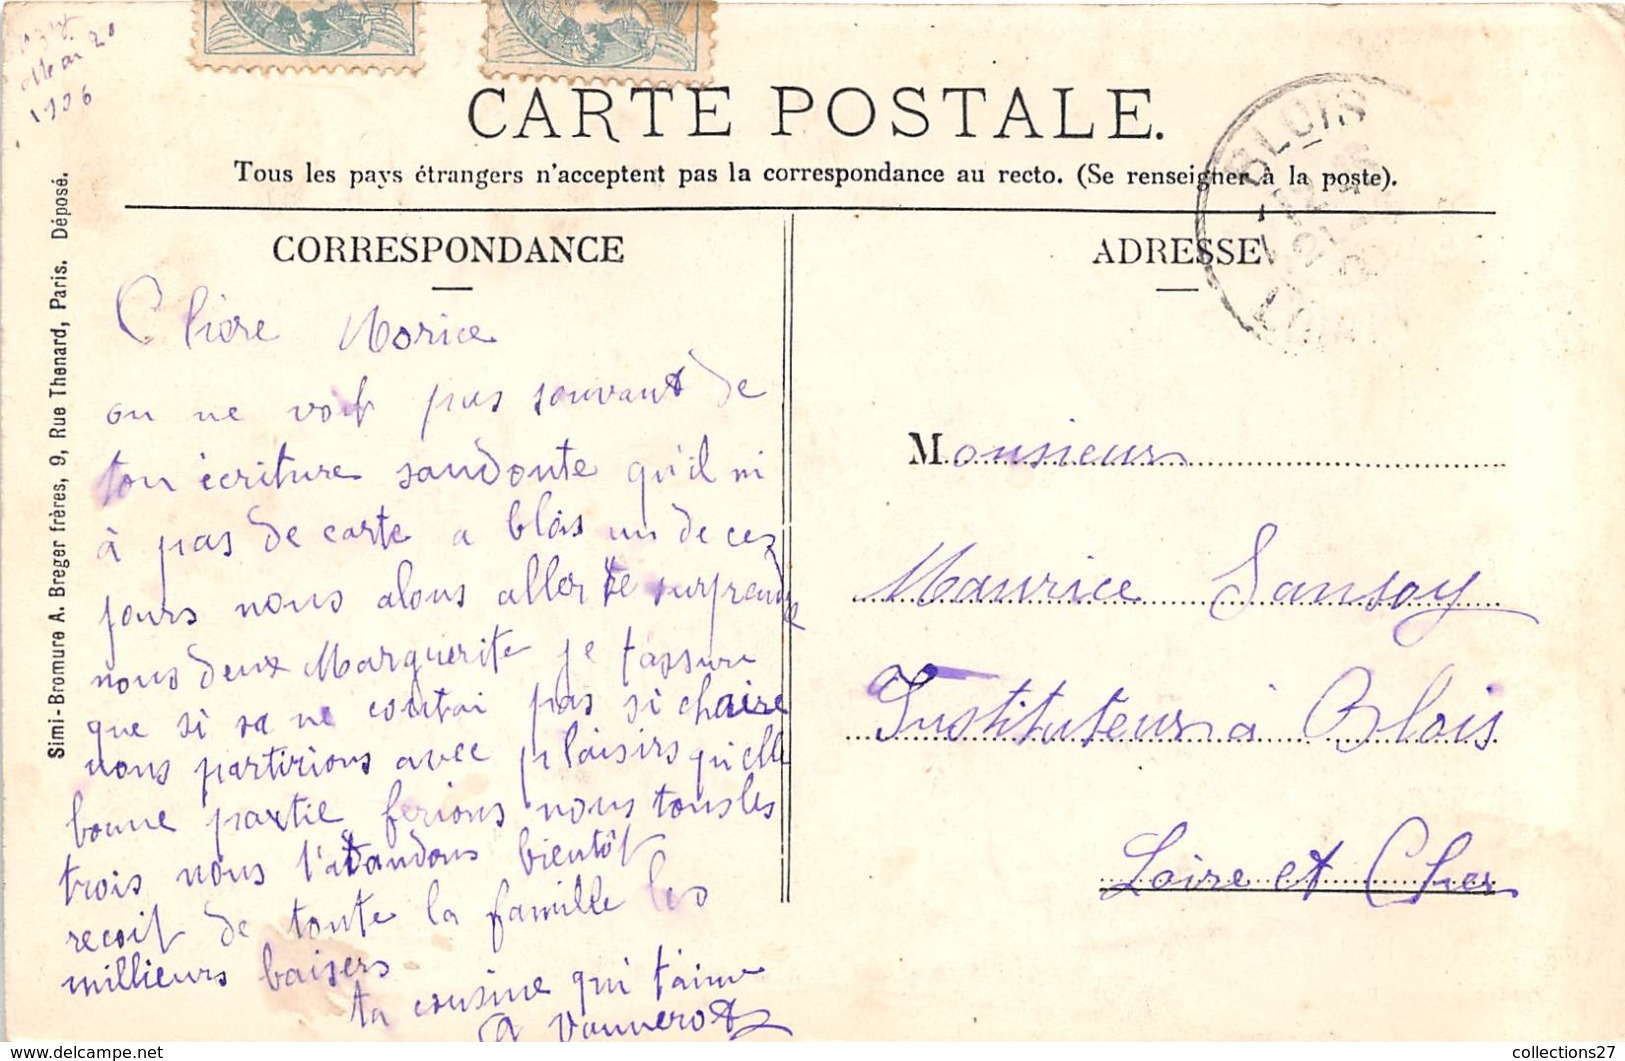 1906
CARTE POSTALE.
Tous les pays étrangers n'acceptent pas la correspondance au recto. (Se renseigner à la poste).
Simi-Bromure A. Breger frères, 9, Rue Thenard, Paris. Déposé.
CORRESPONDANCE
Chere Morice
on ne voit pas souvant de
ton écriture sandoute qu'il ni
à pas de carte a blois un de cez
jours nous alons aller te surprendre
nous deux Marguerite je t'assure
que si sa ne coutai pas si chaire
nous partirions avec plaisirs qu'elle
bonne partie ferions nous tous les
trois nous t'atandons bientôt
recoit de toute la famille les
millieurs baisers
ta cousine qui t'aime
A Vannerot
ADRESSE
BLOIS
Monsieur
Maurice Sansoy
Instituteur à Blois
Loire et Cher
collections27